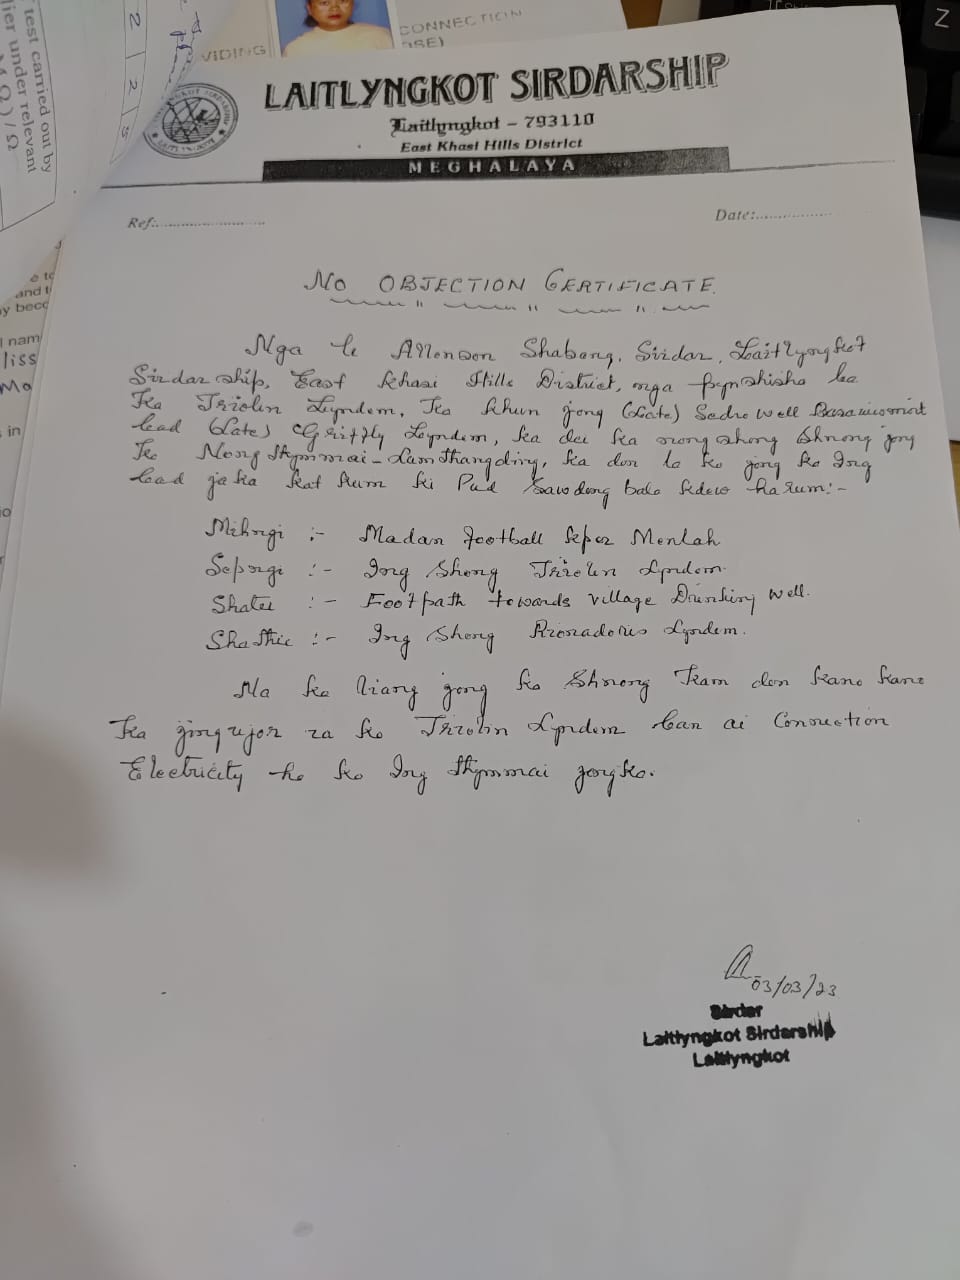 CONNECTION
VIDING
test carried out by
lier under relevant
LAITLYNGKOT SIRDARSHIP
Laitlyngkot - 793110
East Khasi Hills District
MEGHALAYA
Ref:.......................... Date:..................
NO OBJECTION CERTIFICATE
Nga la Shabong, Sirdar, Laitlyngkot
Sirdarship, East Khasi Hills District, nga pynshisha ba
Ka Triolin Lyndem, Ka khun jong (Late) Sadro well
bad (Late) Lyndem, ka dei ka nong shong Shnong jong
Ka Nongthymmai - Lamthangding, ka don la ka jong ka Ing
bad jaka kat kum ki Pud Sawdong bala kdew harum:-
Mihngi :- Madan Football Menlah
Sepngi :- Ing Shong Triolin Lyndem
Shatei :- Footpath towards village Drinking well.
Shathie :- Ing Shong Lyndem.
Na ka liang jong ka Shnong kam don kano kano
ka jingujor ia ka Triolin Lyndem ban ai Connection
Electricity ha ka Ing thymmai jongka.
03/03/23
Sirdar
Laitlyngkot Sirdarship
Laitlyngkot
Z